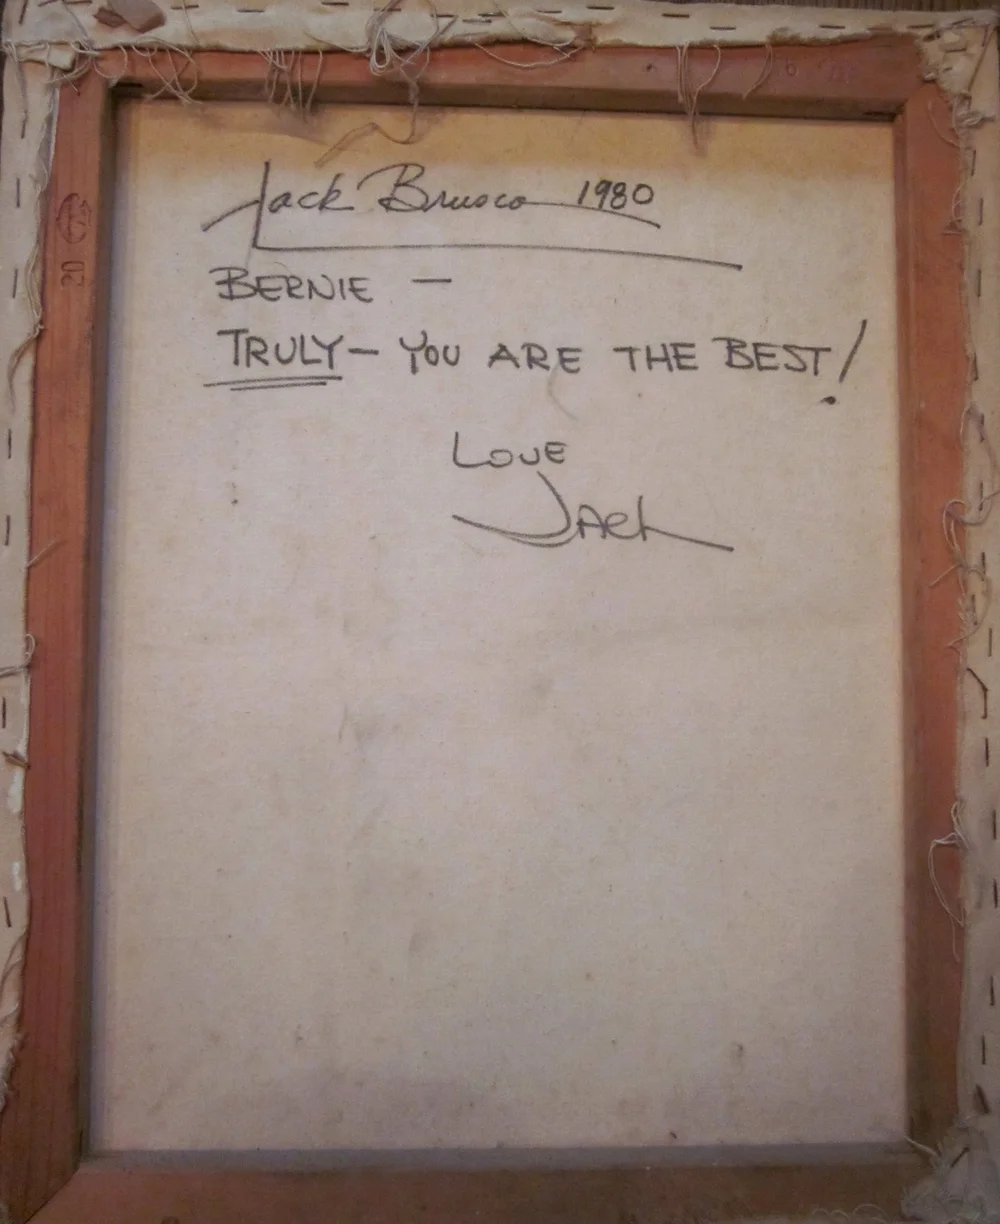 Jack Brusco 1980
BERNIE —
TRULY — YOU ARE THE BEST!
LOVE
JACK
20